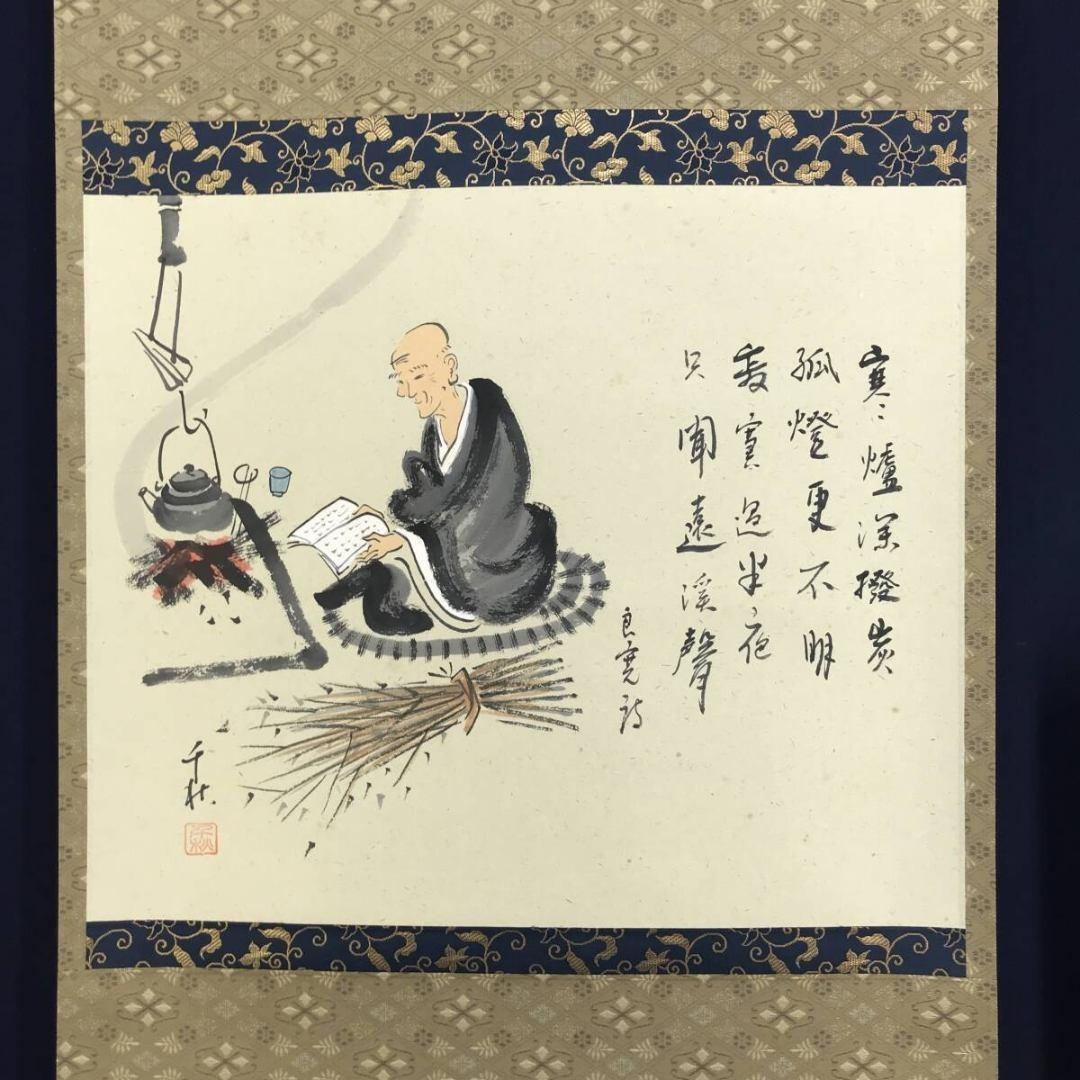 寒爐深撥炭
孤燈更不明
寂寞過半夜
只聞遠溪聲
良寛詩
千秋
千秋